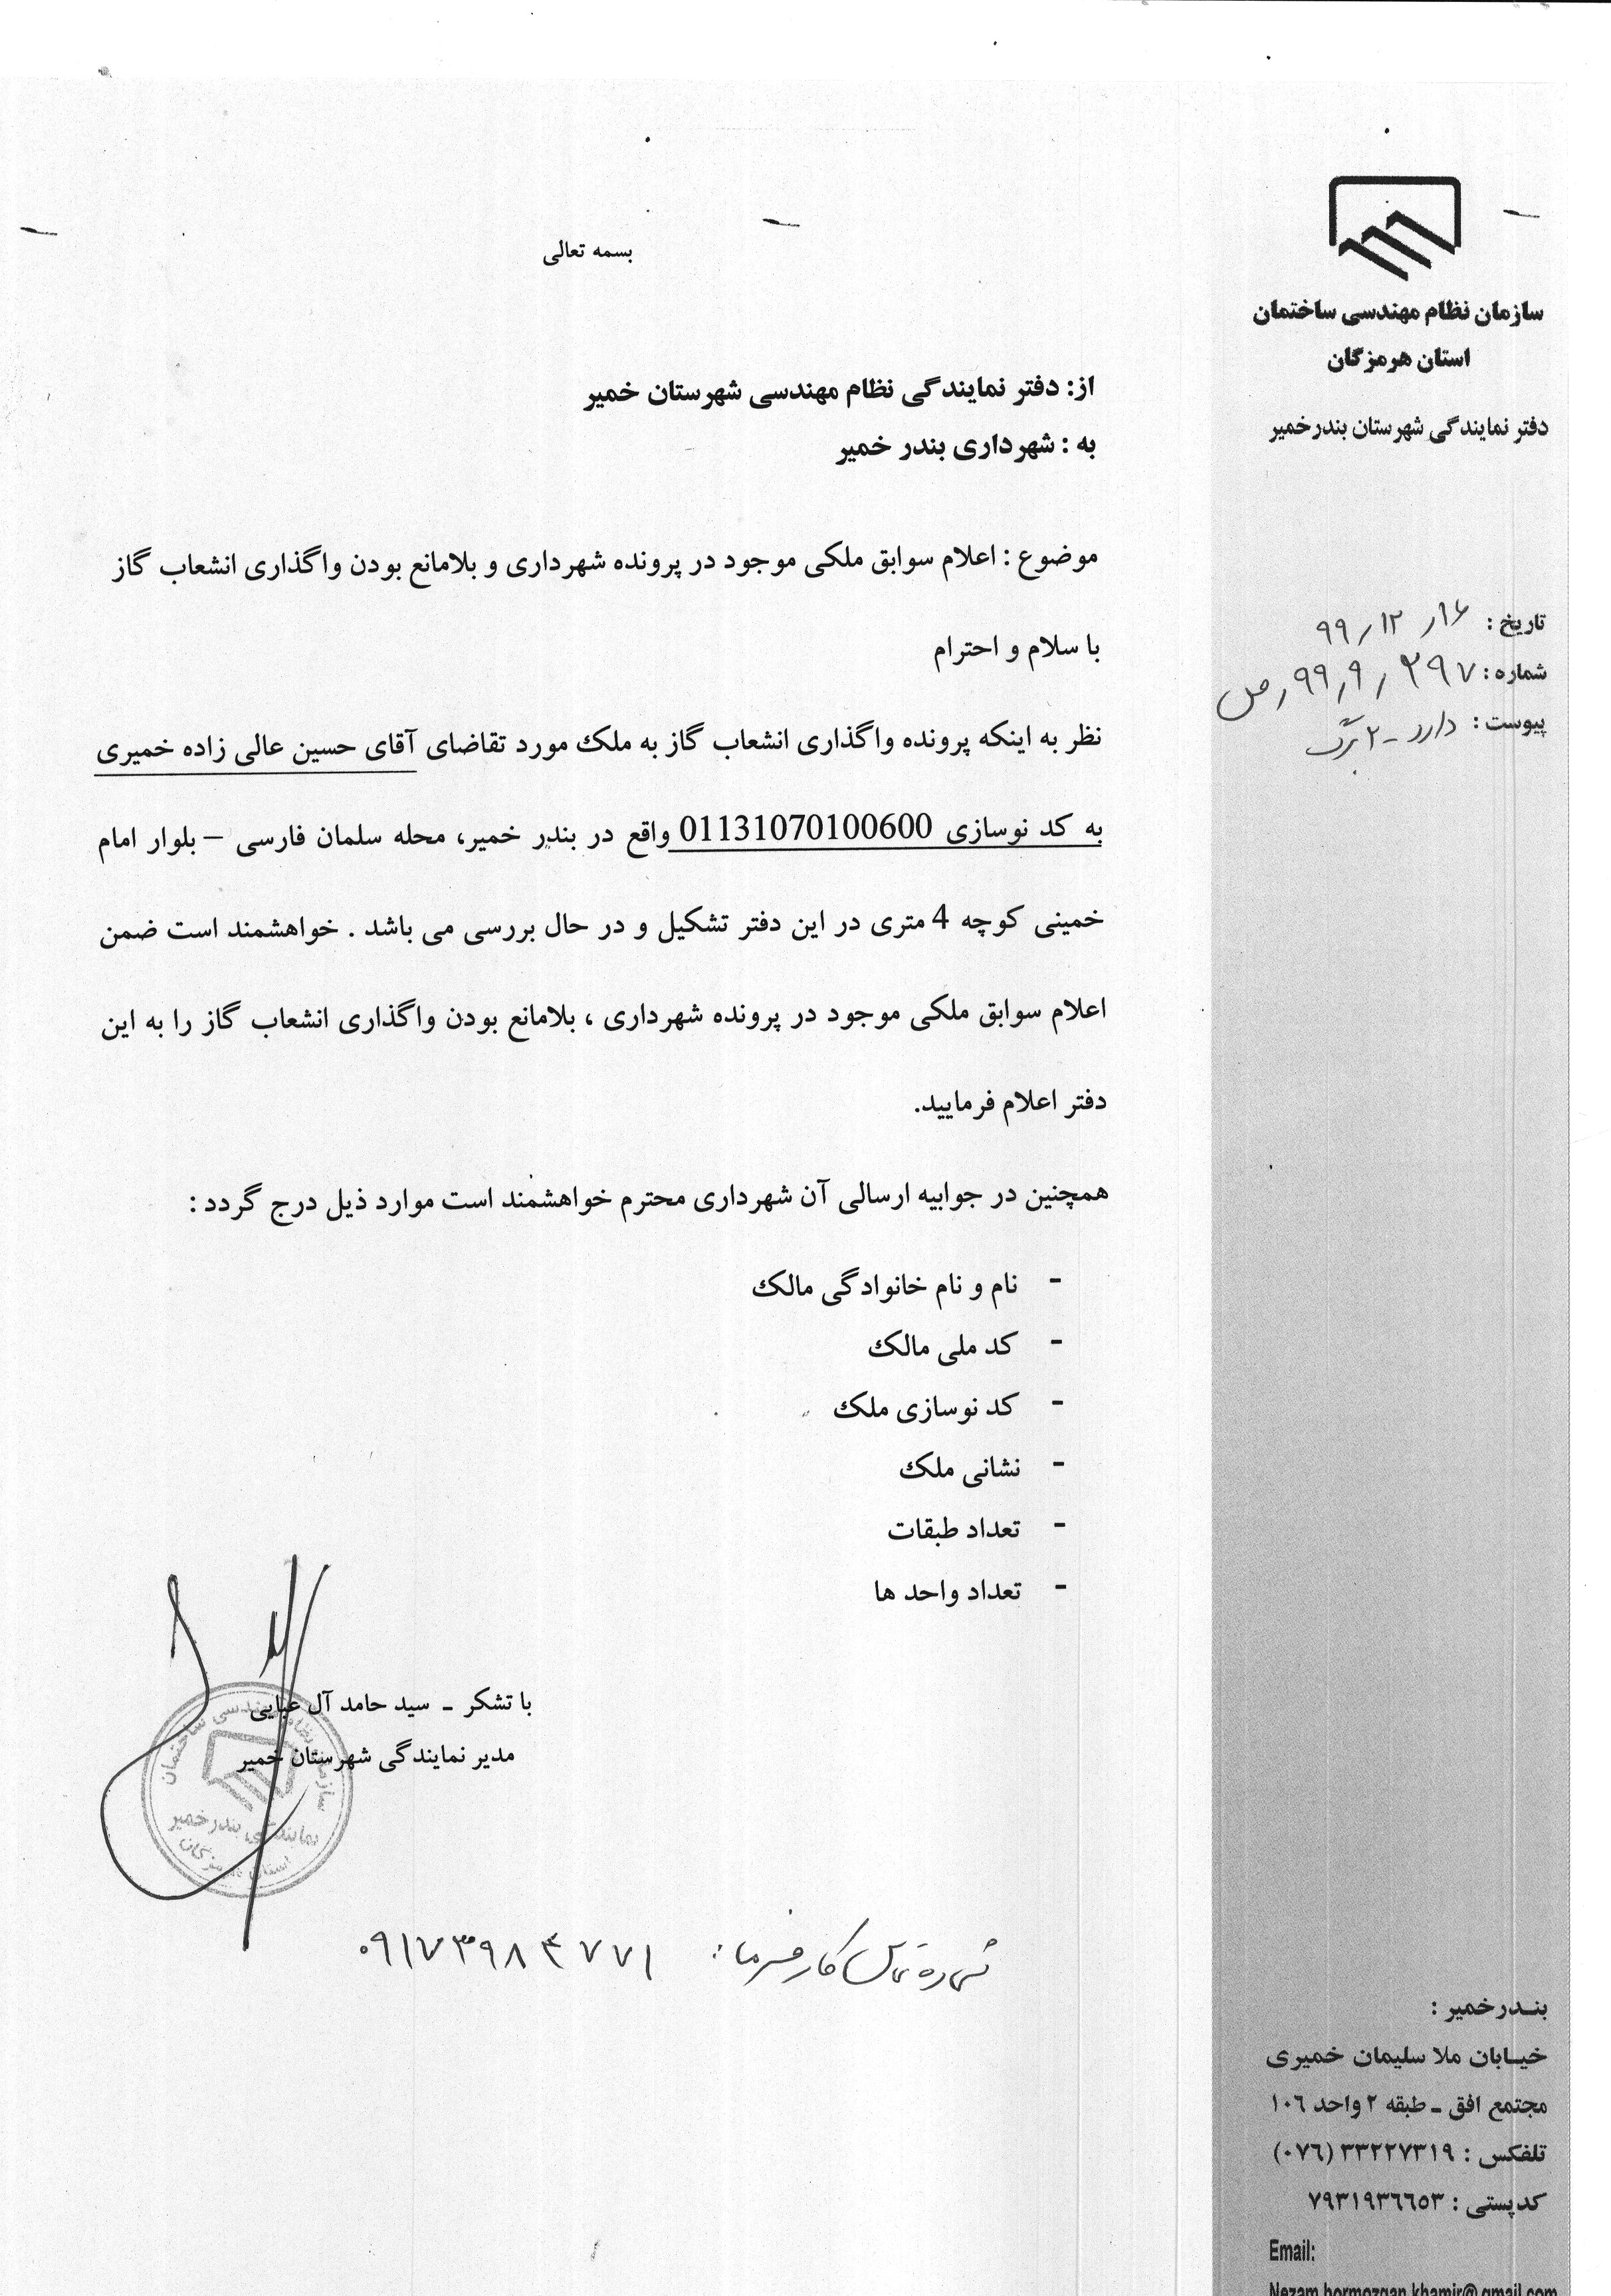 سازمان نظام مهندسی ساختمان
استان هرمزگان
دفتر نمایندگی شهرستان بندرخمیر
تاریخ : ۹۹/۱۲/۱۶
شماره : ۲۹۷ / ۹ / ۹۹ / ص
پیوست : دارد - ۲ برگ
بسمه تعالی
از: دفتر نمایندگی نظام مهندسی شهرستان خمیر
به : شهرداری بندر خمیر
موضوع : اعلام سوابق ملکی موجود در پرونده شهرداری و بلامانع بودن واگذاری انشعاب گاز
با سلام و احترام
نظر به اینکه پرونده واگذاری انشعاب گاز به ملک مورد تقاضای آقای حسین عالی زاده خمیری
به کد نوسازی 01131070100600 واقع در بندر خمیر، محله سلمان فارسی – بلوار امام
خمینی کوچه 4 متری در این دفتر تشکیل و در حال بررسی می باشد . خواهشمند است ضمن
اعلام سوابق ملکی موجود در پرونده شهرداری ، بلامانع بودن واگذاری انشعاب گاز را به این
دفتر اعلام فرمایید.
همچنین در جوابیه ارسالی آن شهرداری محترم خواهشمند است موارد ذیل درج گردد :
- نام و نام خانوادگی مالک
- کد ملی مالک
- کد نوسازی ملک
- نشانی ملک
- تعداد طبقات
- تعداد واحد ها
با تشکر ـ سید حامد آل عبایی
مدیر نمایندگی شهرستان خمیر
سازمان نظام مهندسی ساختمان
نمایندگی بندرخمیر
استان هرمزگان
شماره تماس کارفرما : ۰۹۱۷۳۹۸۴۷۷۱
بندرخمیر :
خیابان ملا سلیمان خمیری
مجتمع افق ـ طبقه ۲ واحد ۱۰۶
تلفکس : ۳۳۲۲۷۳۱۹ (۰۷۶)
کدپستی : ۷۹۳۱۹۳۶۶۵۳
Email:
Nezam.hormozgan.khamir@gmail.com